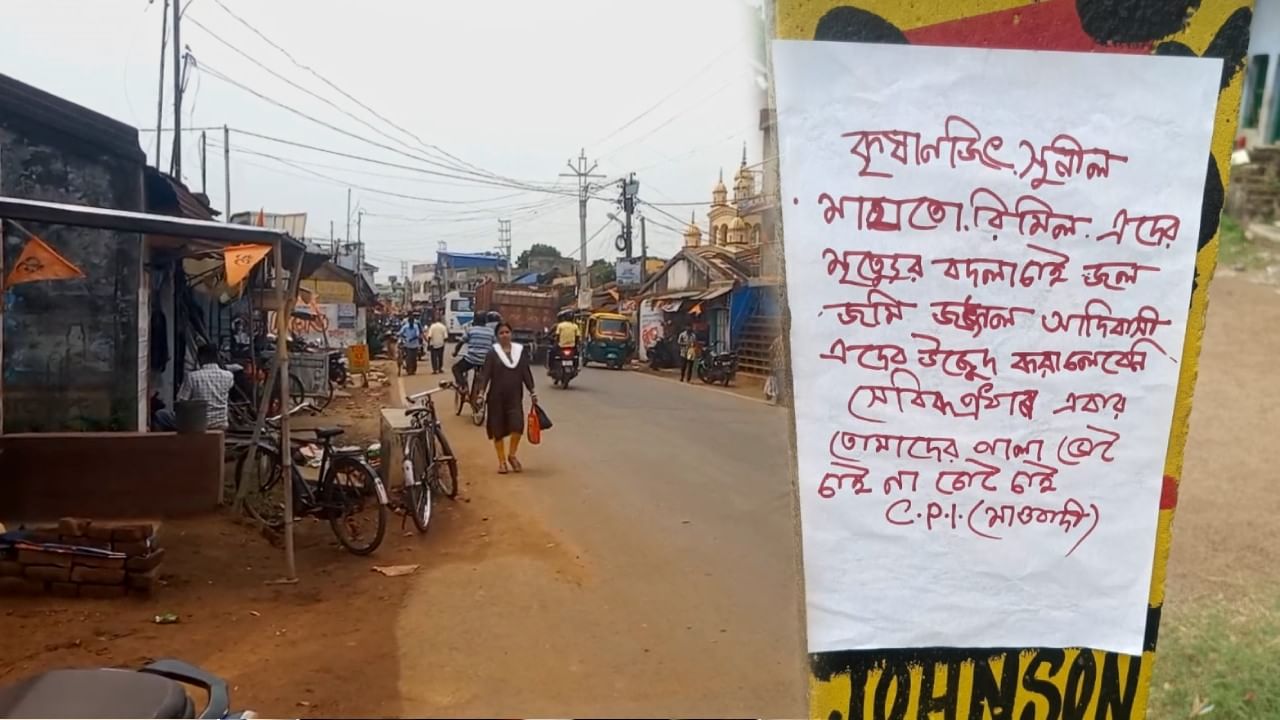 কৃষানজিৎ. সুনীল
মাহাতো. রিমিল. এদের
মৃত্যুর বদলা চাই জল
জমি জঙ্গল আদিবাসী
এদের উচ্ছেদ করা চলবেনা
এবার
তোমাদের পালা ভোট
চাই না ভোট চাই
C.P.I. (মাওবাদী)
JOHNSON